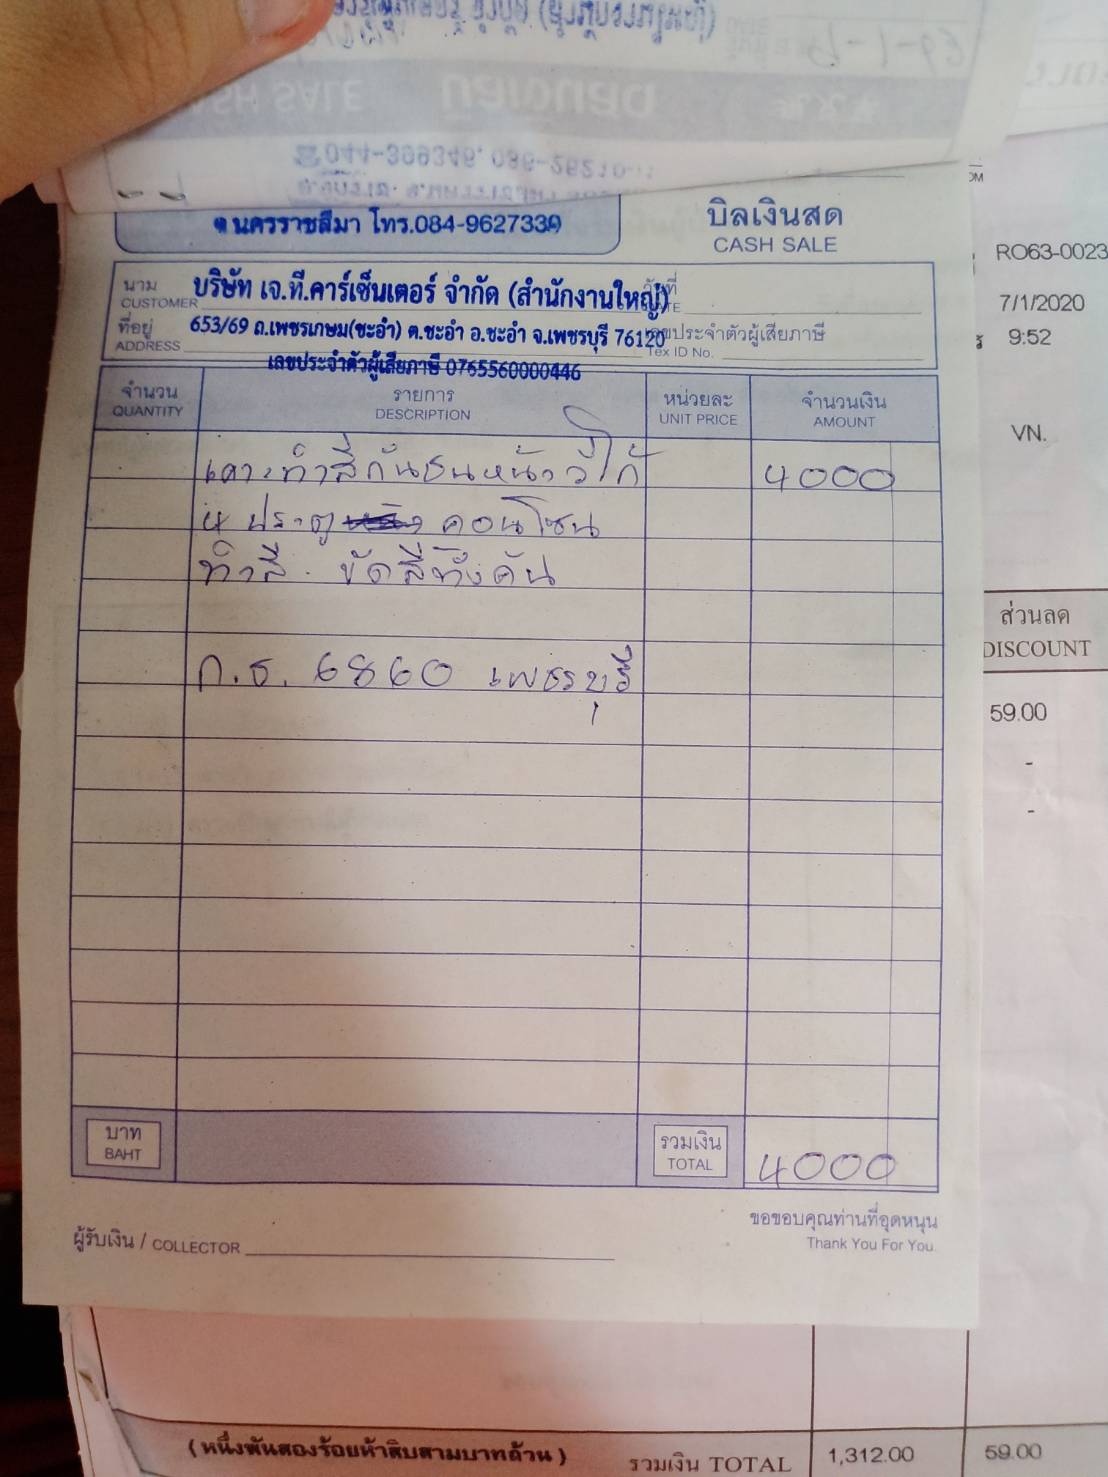 CASH SALE บิลเงินสด
จ.นครราชสีมา โทร.084-9627339
บิลเงินสด
CASH SALE
นาม บริษัท เจ.ที.คาร์เซ็นเตอร์ จำกัด (สำนักงานใหญ่)
CUSTOMER
ที่อยู่ 653/69 ถ.เพชรเกษม(ชะอำ) ต.ชะอำ อ.ชะอำ จ.เพชรบุรี 76120 เลขประจำตัวผู้เสียภาษี
ADDRESS Tex ID No.
เลขประจำตัวผู้เสียภาษี 0765560000446
จำนวน รายการ หน่วยละ จำนวนเงิน
QUANTITY DESCRIPTION UNIT PRICE AMOUNT
เคาะทำสีกันชนหน้า วีโก้ 4000
4 ประตู คอนโซน
ทำสี. ขัดสีทั้งคัน
ก.ธ. 6860 เพชรบุรี
บาท รวมเงิน 4000
BAHT TOTAL
ขอขอบคุณท่านที่อุดหนุน
ผู้รับเงิน / COLLECTOR Thank You For You.
RO63-0023
7/1/2020
9:52
VN.
ส่วนลด
DISCOUNT
59.00
-
-
(หนึ่งพันสองร้อยห้าสิบสามบาทถ้วน) รวมเงิน TOTAL 1,312.00 59.00